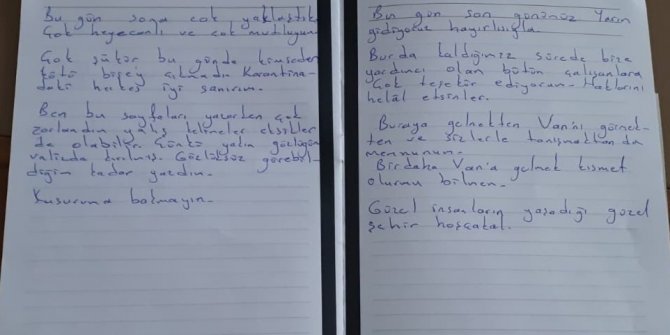 Bu gün sona çok yaklaştık
Çok heyecanlı ve çok mutluyum
Çok şükür bu günde kimseden
kötü bişey çıkmadı Karantina-
daki herkes iyi sanırım.
Ben bu sayfaları yazarken çok
zorlandım yanlış kelimeler eksikler
de olabilir Çünkü yakın gözlüğüm
valizda kırılmış. Gözlüksüz görebil-
diğim kadar yazdım.
Kusuruma bakmayın.
Bu gün son günümüz Yarın
gidiyoruz hayırlısıyla.
Burda kaldığımız sürede bize
yardımcı olan bütün çalışanlara
Çok teşekür ediyorum. Haklarını
helâl etsinler.
Buraya gelmekten Van'ı görmek-
ten ve sizlerle tanışmaktan da
memnunum.
Birdaha Van'a gelmek kısmet
olurmu bilmem.
Güzel insanların yaşadığı güzel
şehir hoşçakal.